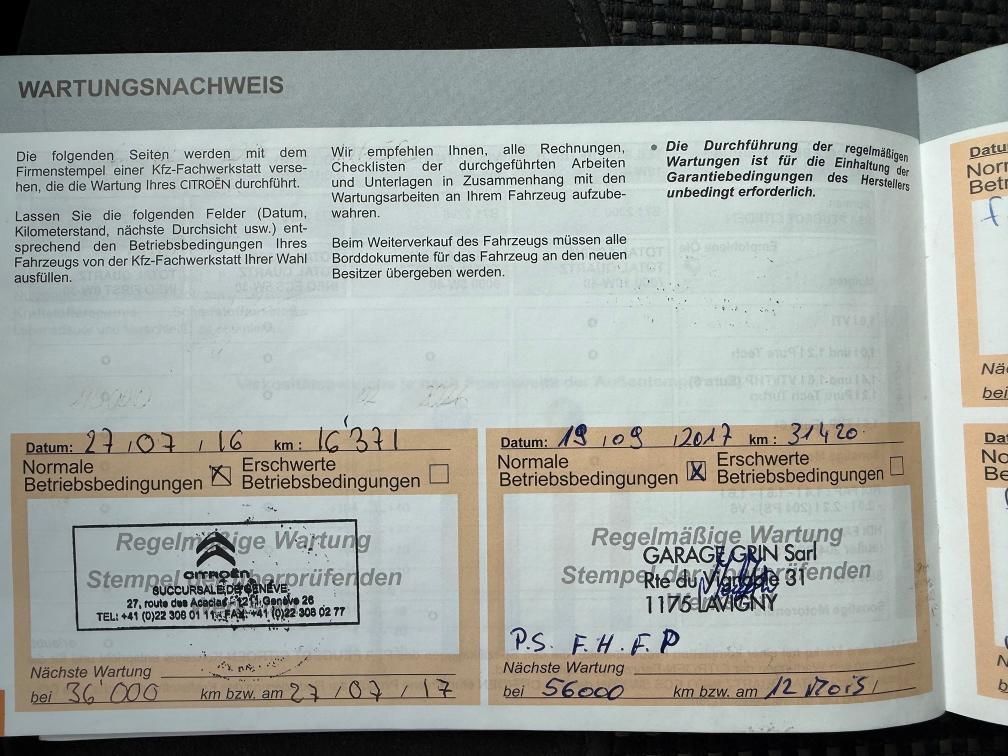 WARTUNGSNACHWEIS
Die folgenden Seiten werden mit dem
Firmenstempel einer Kfz-Fachwerkstatt verse-
hen, die die Wartung Ihres CITROËN durchführt.
Lassen Sie die folgenden Felder (Datum,
Kilometerstand, nächste Durchsicht usw.) ent-
sprechend den Betriebsbedingungen Ihres
Fahrzeugs von der Kfz-Fachwerkstatt Ihrer Wahl
ausfüllen.
Wir empfehlen Ihnen, alle Rechnungen,
Checklisten der durchgeführten Arbeiten
und Unterlagen in Zusammenhang mit den
Wartungsarbeiten an Ihrem Fahrzeug aufzube-
wahren.
Beim Weiterverkauf des Fahrzeugs müssen alle
Borddokumente für das Fahrzeug an den neuen
Besitzer übergeben werden.
• Die Durchführung der regelmäßigen
Wartungen ist für die Einhaltung der
Garantiebedingungen des Herstellers
unbedingt erforderlich.
Datum: 27 / 07 / 16 km : 16'371
Normale
Betriebsbedingungen
Erschwerte
Betriebsbedingungen
Regelmäßige Wartung
Stempel der überprüfenden
CITROËN
SUCCURSALE DE GENÈVE
27, route des Acacias - 1211 Genève 26
TEL: +41 (0)22 308 01 11 - FAX: +41 (0)22 308 02 77
Nächste Wartung
bei 36'000 km bzw. am 27 / 07 / 17
Datum: 19 / 09 / 2017 km : 31420
Normale
Betriebsbedingungen
Erschwerte
Betriebsbedingungen
Regelmäßige Wartung
Stempel der überprüfenden
GARAGE GRIN Sarl
Rte du Vignoble 31
1175 LAVIGNY
P.S. F.H.F.P
Nächste Wartung
bei 56000 km bzw. am 12 Mois /